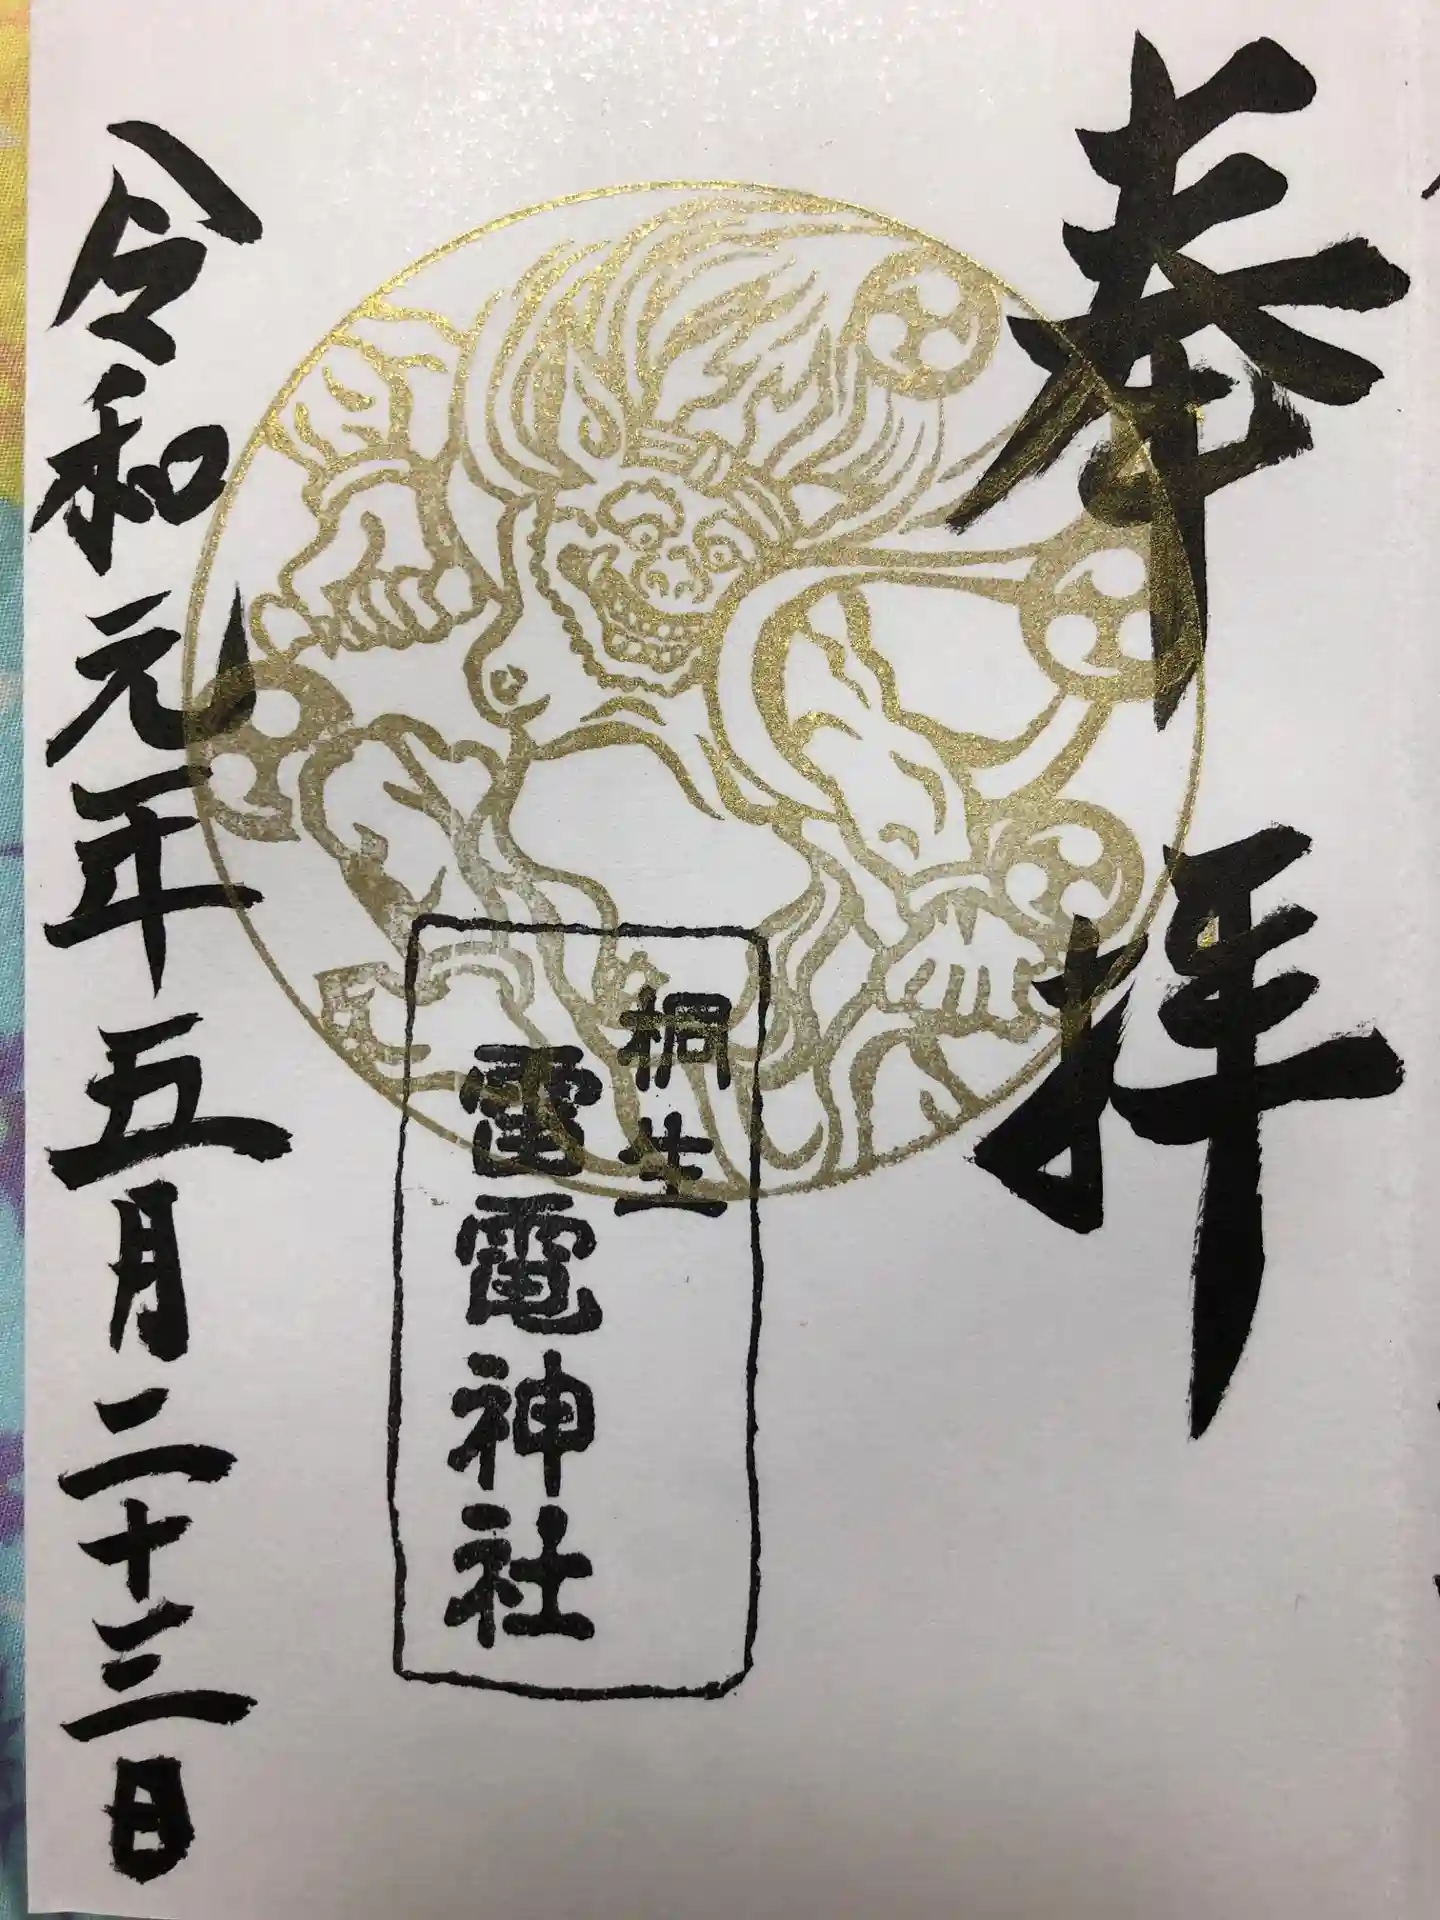 奉拝
桐生
雷電神社
令和元年五月二十三日